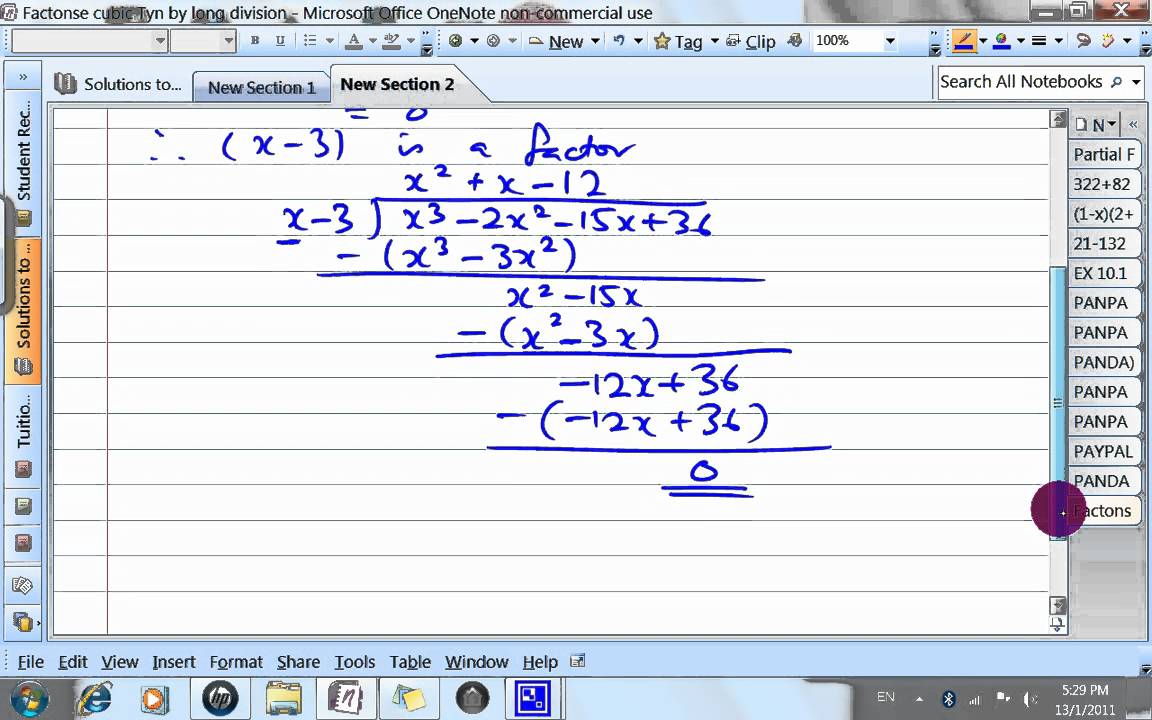 Factonse cubic Tyn by long division - Microsoft Office OneNote non-commercial use
B U A ab New Tag Clip 100%
Solutions to... New Section 1 New Section 2 Search All Notebooks
Student Rec...
Solutions to ...
Tuitio...
= 0
∴ (x-3) is a factor
x² + x - 12
x-3 ) x³ - 2x² - 15x + 36
- (x³ - 3x²)
x² - 15x
- (x² - 3x)
-12x + 36
- (-12x + 36)
0
N
Partial F
322+82
(1-x)(2+
21-132
EX 10.1
PANPA
PANPA
PANDA)
PANPA
PANPA
PAYPAL
PANDA
Factons
File Edit View Insert Format Share Tools Table Window Help
EN 5:29 PM
13/1/2011